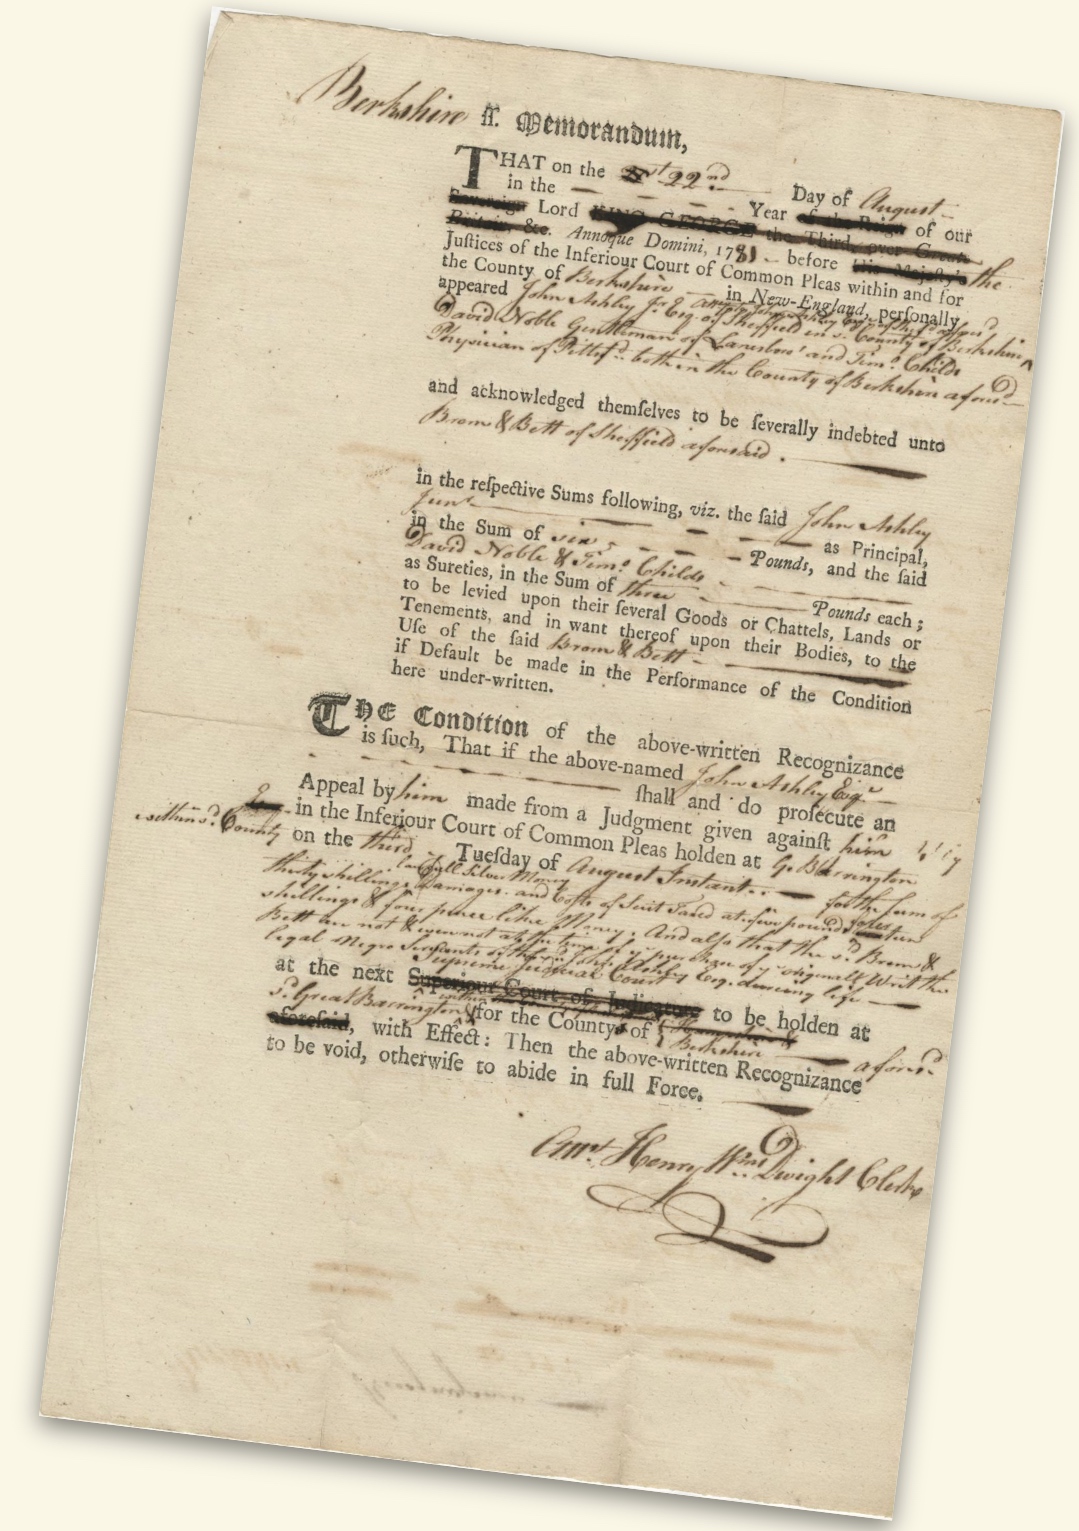 Berkshire ss. Memorandum,
THAT on the 22nd Day of August
in the Year of the Reign of our
Sovereign Lord KING GEORGE the Third, over Great-
Britain, &c. Annoque Domini, 1781 before His Majesty's the
Justices of the Inferiour Court of Common Pleas within and for
the County of Berkshire in New-England, personally
appeared John Ashley Jr. Esq. of Sheffield in sd. County of Berkshire
David Noble Gentleman of Lanesboro' and Timo. Childs
Physician of Pittsfd. both in the County of Berkshire aforesd
and acknowledged themselves to be severally indebted unto
Brom & Bett of Sheffield aforesaid.
in the respective Sums following, viz. the said John Ashley
Junr. as Principal,
in the Sum of six Pounds, and the said
David Noble & Timo. Childs
as Sureties, in the Sum of three Pounds each;
to be levied upon their several Goods or Chattels, Lands or
Tenements, and in want thereof upon their Bodies, to the
Use of the said Brom & Bett
if Default be made in the Performance of the Condition
here under-written.
THE Condition of the above-written Recognizance
is such, That if the above-named John Ashley Esqr
shall and do prosecute an
Appeal by him made from a Judgment given against him
in the Inferiour Court of Common Pleas holden at Gt. Barrington
within sd. County on the third Tuesday of August Instant for the Sum of
thirty shillings lawfull Silver Money Damages and Costs of Suit Taxed at five pounds fourteen
shillings & four pence like Money. And also that the sd. Brom &
Bett are not & were not at the time of the original Writ the
legal Negro Servants of John Ashley Esq. during life
at the next Supreme Judicial Court Superiour Court of Judicature to be holden at
sd. Great Barrington aforesaid, for the County of Berkshire aforesd.
with Effect: Then the above-written Recognizance
to be void, otherwise to abide in full Force.
Attr. Henry Wms Dwight Clerk